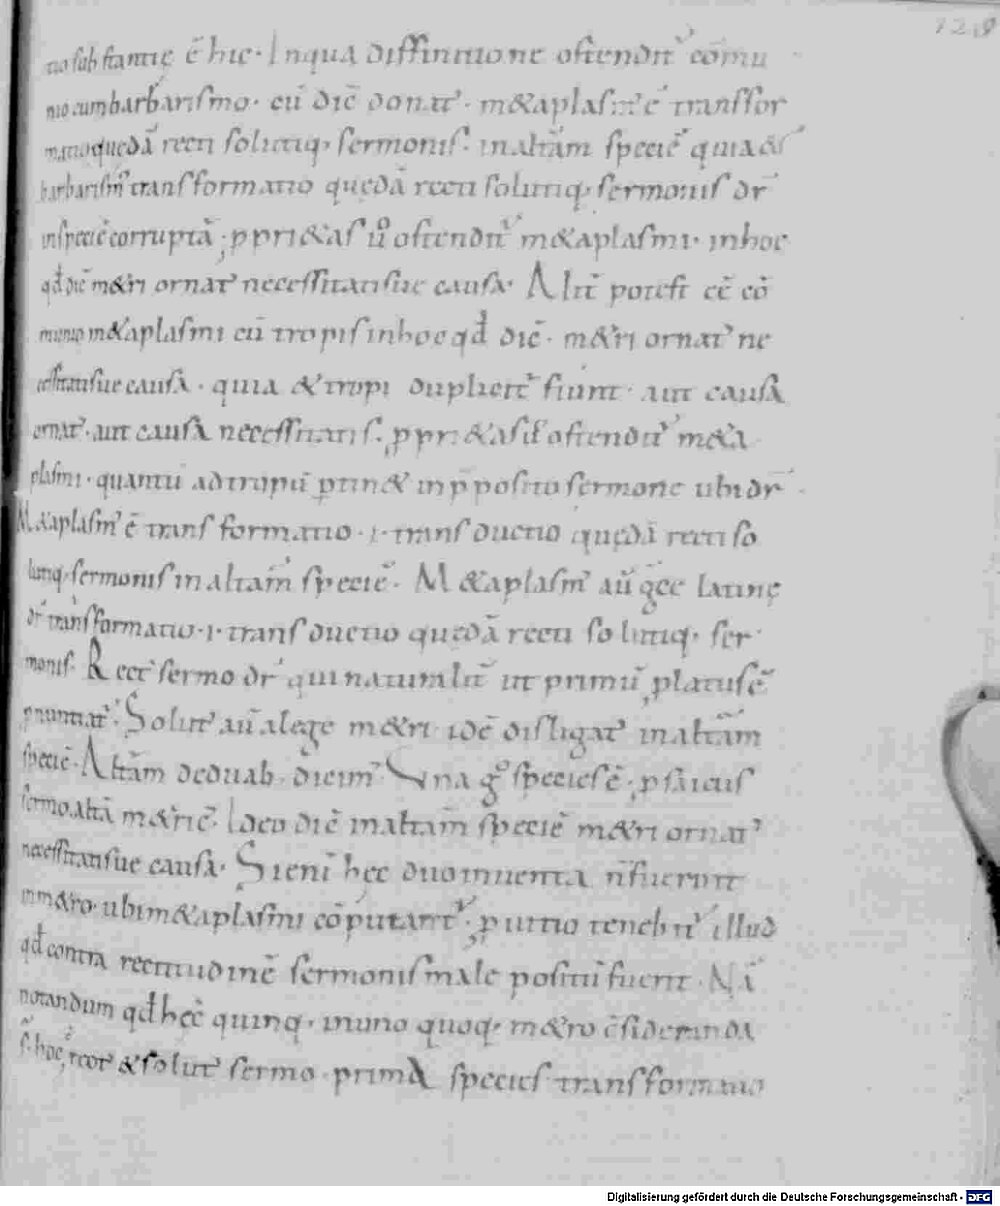 129
tio substantię ē hic. In qua diffinitione ostendit᷒ cōmu
nio cum barbarismo. cū dic̄ donat᷒. m&aplasm᷒ ē transfor
matio quędā recti solutiq; sermonis. in altām speciē quia &
barbarism᷒ transformatio quędā recti solutiq; sermonis dr̄
in speciē corruptā; ꝓpri&as ů ostendit᷒ m&aplasmi. in hoc
qđ dic̄ m&ri ornat᷒ necessitatisue causa. Alit̄ potest eē cō
munio m&aplasmi cū tropis in hoc qđ dic̄. m&ri ornat᷒ ne
cessitatisue causa. quia & tropi duplicit᷒ fiunt. aut causa
ornat᷒. aut causa necessitatis. ꝓpri&as ł ostendit᷒ m&a
plasmi. quantū ad tropū ꝑtin& in p̄posito sermone ubi dr̄.
M&aplasm᷒ ē transformatio .i. transductio quędā recti so
lutiq; sermonis in altam̄ speciē. M&aplasm᷒ aū gręcę latinę
dr̄ transformatio .i. transductio quędā recti solutiq; ser
monis. Rect᷒ sermo dr̄ qui naturalit̄ ut primū ꝓlatus ē
ꝓnuntiat᷒. Solut᷒ aū a lege m&ri idē disligat᷒ in altām
speciē. Altām de duab᷒ dicim᷒. Una gº species ē. ꝓsaicus
sermo. altā m&ric᷒. Ideo dic̄ in altām speciē m&ri ornat᷒
necessitatisue causa. Si enī hęc duo inuenta n̄ fuerint
in m&ro. ubi m&aplasmi cōputant᷒. ꝓ uitio tenebit᷒ illud
qđ contra rectitudinē sermonis male positū fuerit. Nā
notandum qđ hęc quinq; in uno quoq; m&ro c̄sideranda
s̄. hoc ē rect᷒ & solut᷒ sermo. prima species transformatio
Digitalisierung gefördert durch die Deutsche Forschungsgemeinschaft - DFG